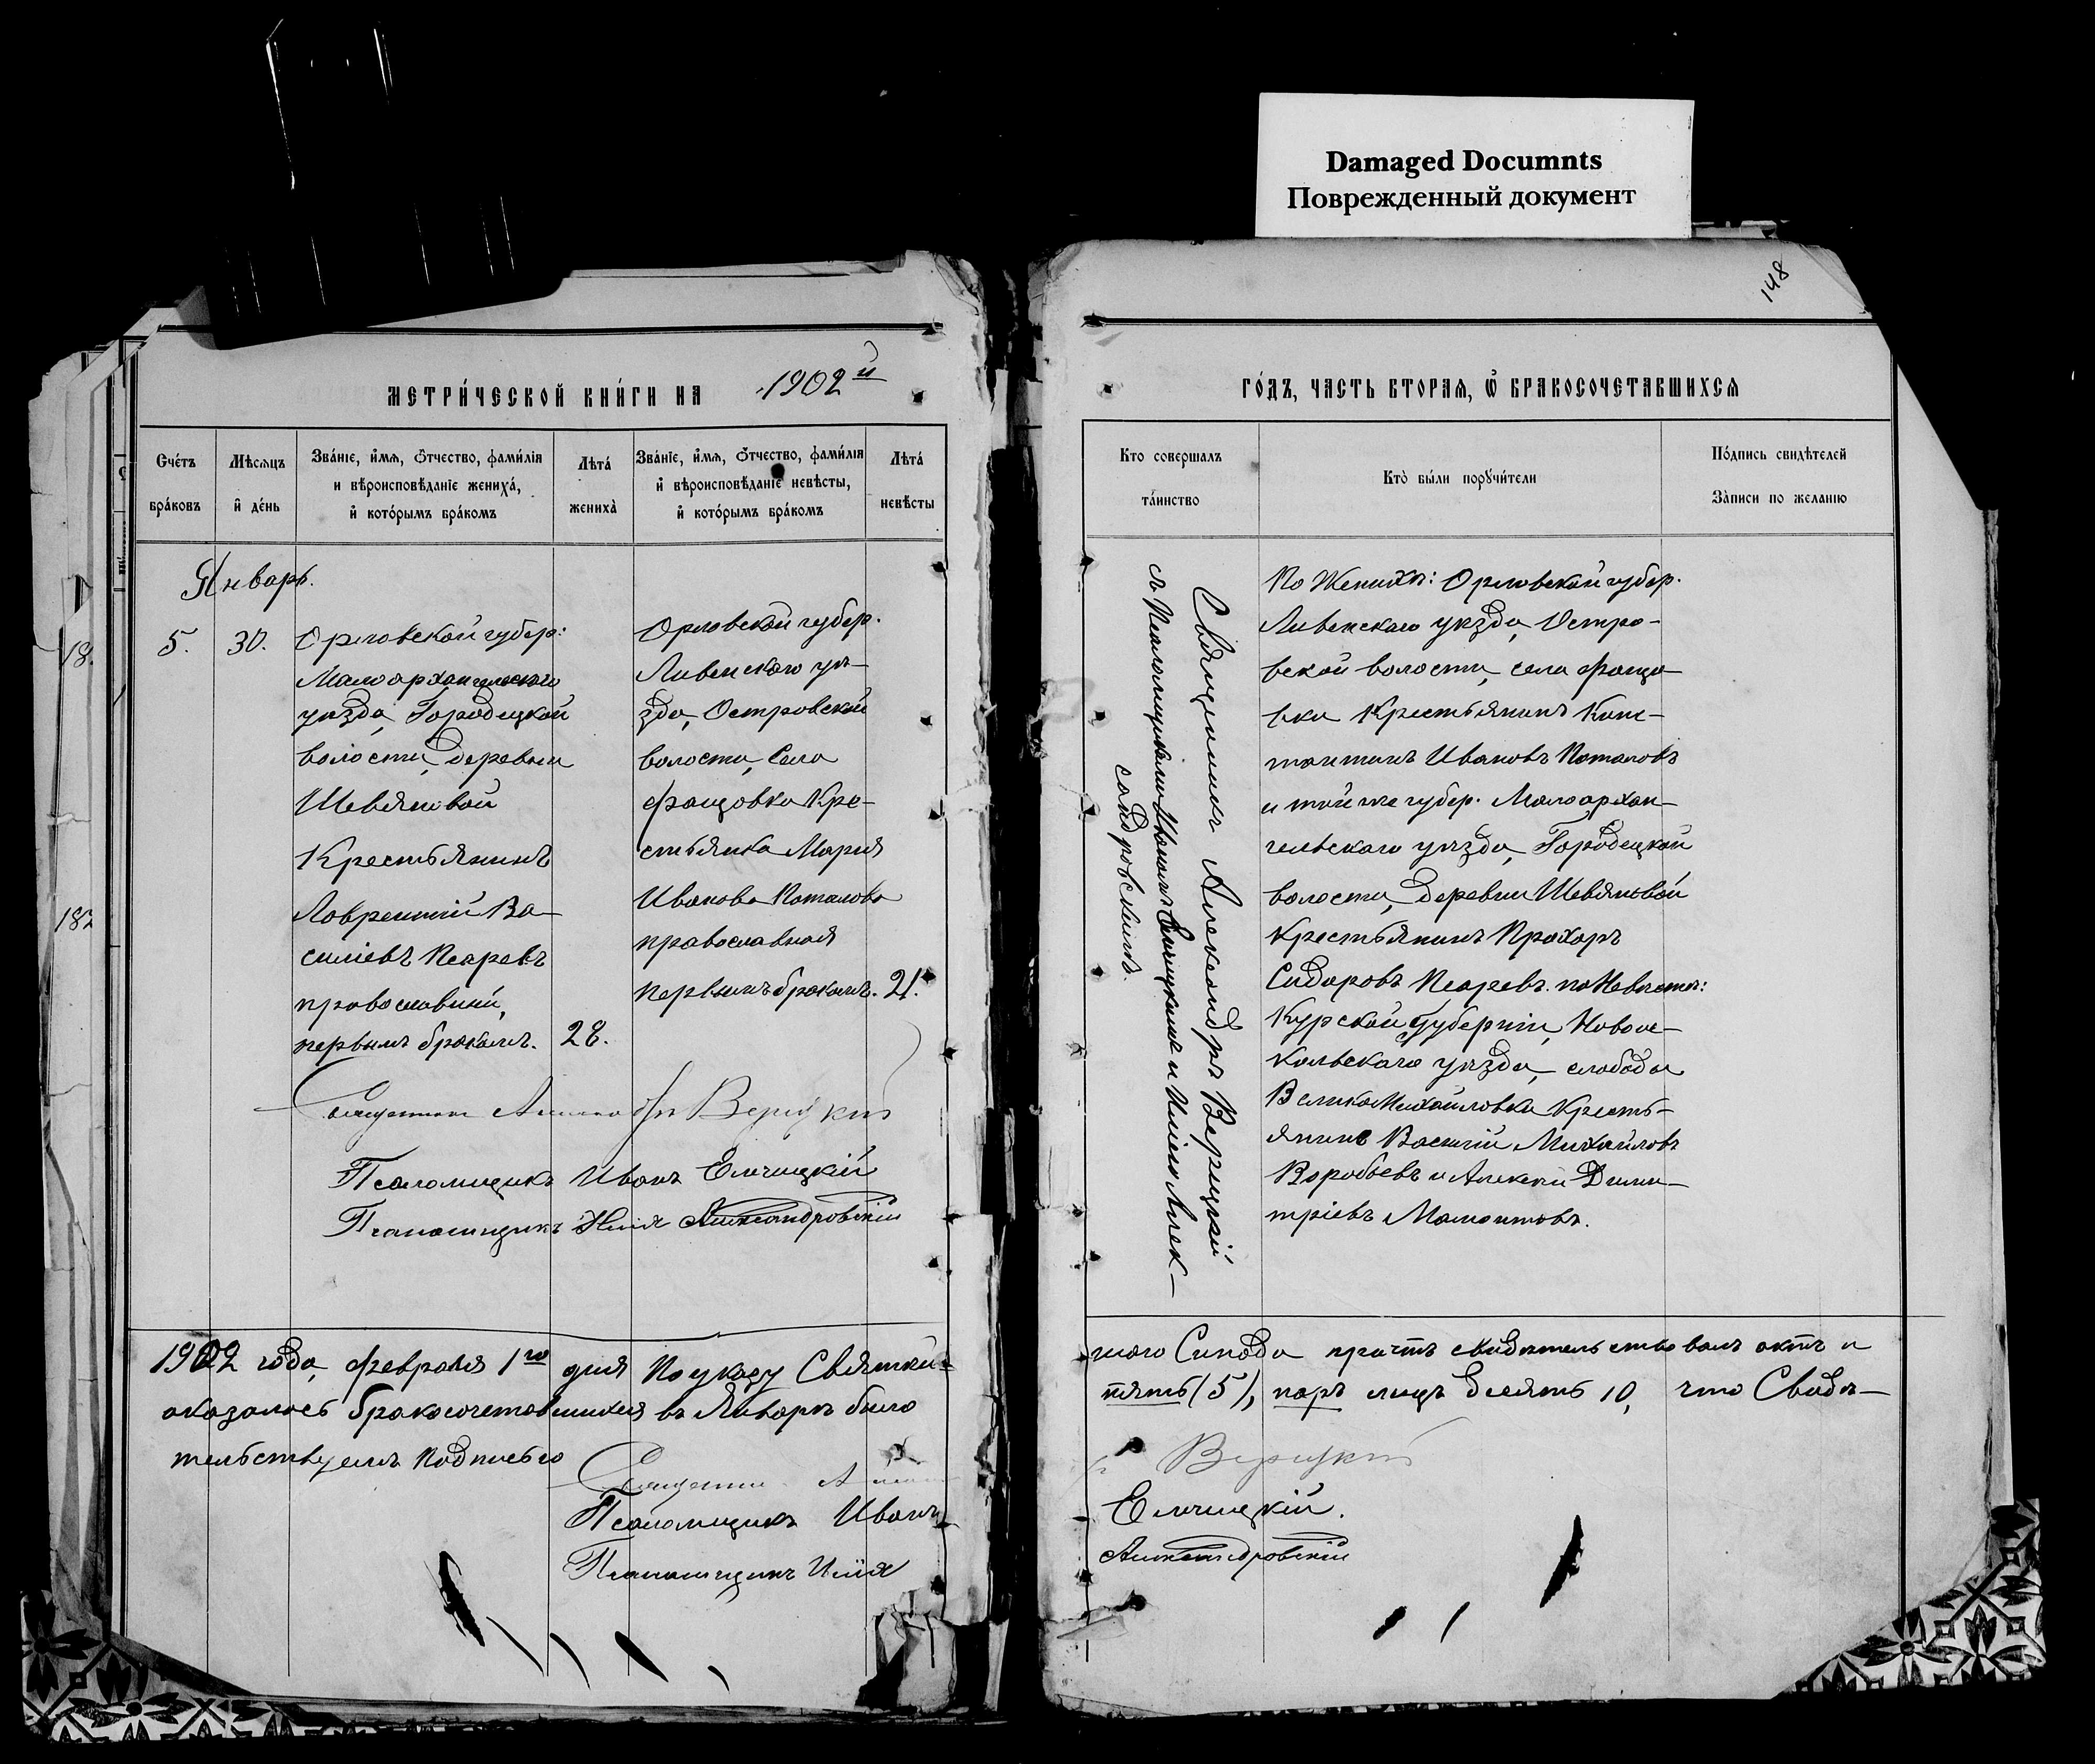 Damaged Documnts
Поврежденный документ
148
МЕТРИ́ЧЕСКОЙ КНИ́ГИ НА 1902й
ГО́ДЪ, ЧАСТЬ ВТОРАЯ, Ѡ҆ БРАКОСОЧЕТАВШИХСЯ
Счетъ браковъ
Мѣсяцъ и҆ де́нь
Зва́нїе, и҆́мя, ѻ҆́тчество, фами́лїя и вѣроисповѣ́данїе жениха̀, и҆ кото́рымъ бра́комъ
Лѣта́ жениха̀
Зва́нїе, и҆́мя, ѻ҆́тчество, фами́лїя и҆ вѣроисповѣ́данїе невѣ́сты, и҆ кото́рымъ бра́комъ
Лѣта́ невѣ́сты
Кто совершалъ та́инство
Кто̀ бы́ли порꙋчи́тели
По́дпись свидѣ́телей За́писи по желанїю
Январь.
18.
5.
30.
Орловской губер:
Малоархангельскаго
уѣзда, Городецкой
волости, деревни
Шевяковой
Крестьянинъ
Лаврентій Ва-
силіевъ Псаревъ
православный,
первымъ бракомъ.
28.
Орловской губер.
Ливенскаго уѣ-
зда, Островской
волости, села
Фащовка Кре-
стьянка Марія
Иванова Потапова
православная
первымъ бракомъ.
21.
182
Священникъ Александръ Верицкій
Псаломщикъ Иванъ Елчицкій
Псаломщикъ Илія Александровскій
Священникъ Александръ Верицкій
съ Псаломщиками Иваномъ Елчицкимъ и Иліею Алек-
сандровскимъ.
По Женихѣ: Орловской губер.
Ливенскаго уѣзда, Остро-
вской волости, села Фащо-
вки Крестьянинъ Конс-
тантинъ Ивановъ Потаповъ
и той же губер. Малоархан-
гельскаго уѣзда, Городецкой
волости, деревни Шевяковой
Крестьянинъ Прохоръ
Сидоровъ Псаревъ. по Невѣстѣ:
Курской Губерніи, Новоос-
кольскаго уѣзда, слободы
ВеликоМихайловки Кресть-
янинъ Василій Михайловъ
Воробьевъ и Алексѣй Дими-
тріевъ Мамонтовъ.
1902 года, февраля 1го дня По указу Святѣй-
шаго Синода причтъ свидѣтельствовалъ актъ и
оказалось бракосочетавшихся въ Январѣ было
пять (5), паръ лицъ десять 10, что Свидѣ-
тельствуемъ подписью
Священникъ Алек
Верицкій
Псаломщикъ Иванъ
Елчицкій.
Псаломщикъ Илія
Александровскій